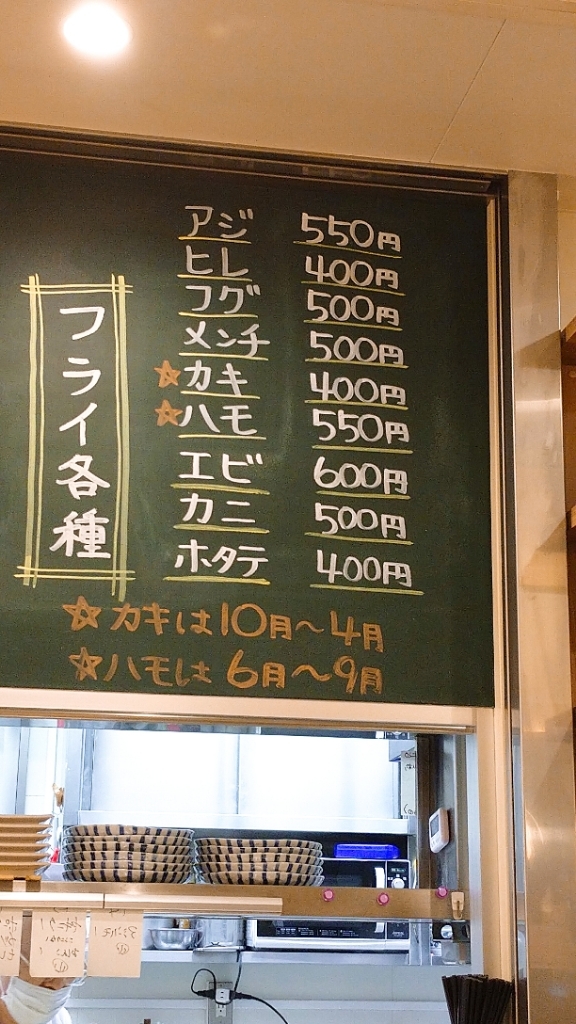 フライ各種
アジ 550円
ヒレ 400円
フグ 500円
メンチ 500円
☆カキ 400円
☆ハモ 550円
エビ 600円
カニ 500円
ホタテ 400円
☆カキは10月〜4月
☆ハモは6月〜9月